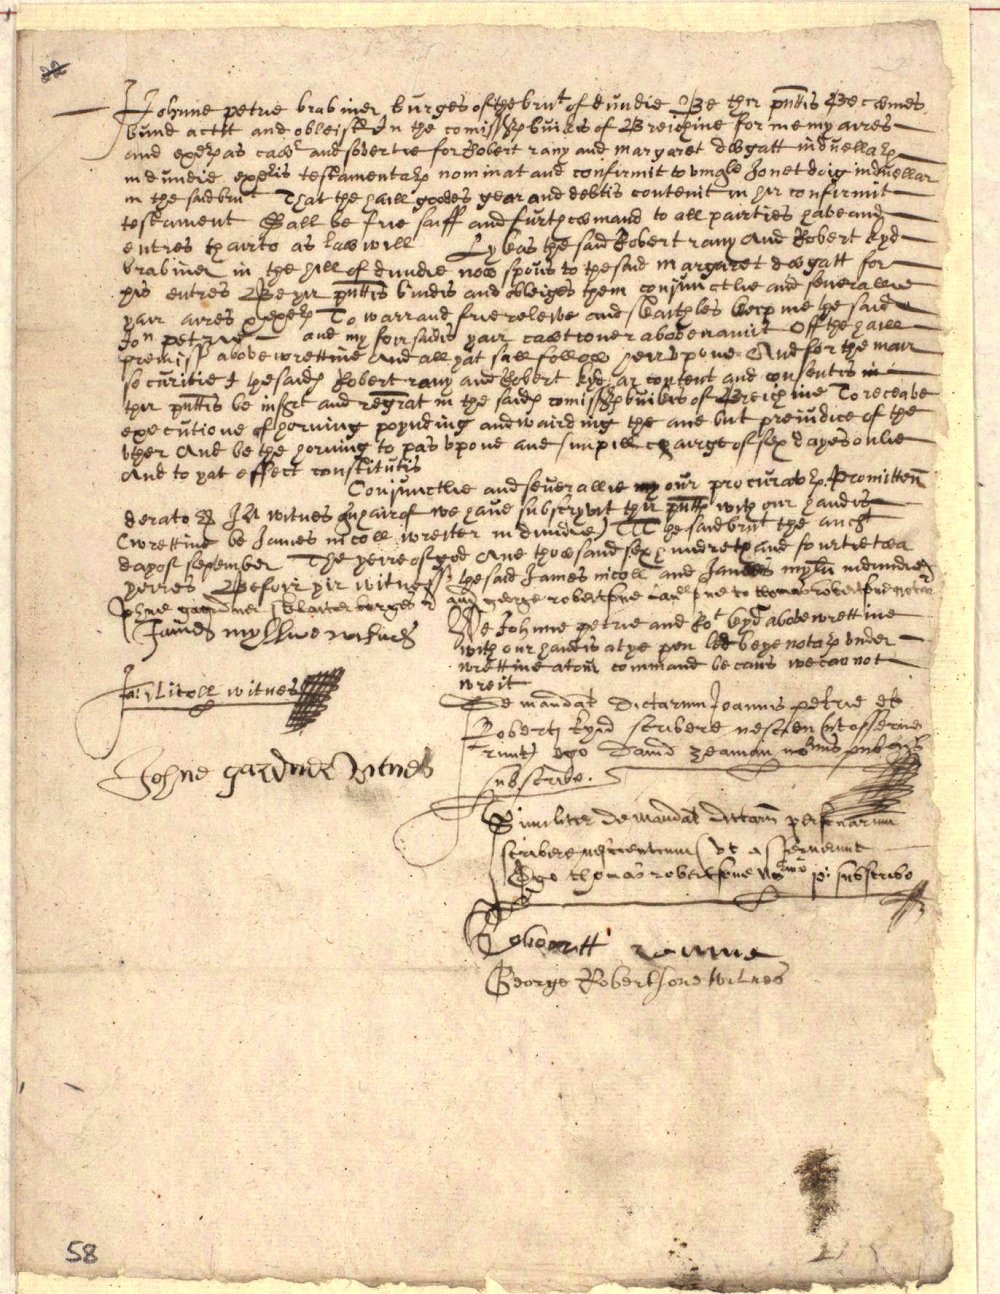 I Johnne petrie brabiner burges of the brut of dundie Be thir pntis Becomes
bund actit and obleist In the comissr buikis of Breichine for me my aires
and exers as cawr and sovertie for Robert rany and margaret dowgatt induellars
in dundie exeris testamentars nominat and confirmit to umqle Jonet doig induellar
in the said brut That the haill goodes gear and debtis contenit in hir confirmit
testament Sall be frie saiff and furthcomand to all pairties haveand
entres thairto as law will Lykas the said Robert rany And Robert kyd
brabiner in the hill of dundie now spous to the said margaret dowgatt for
his entres Be yir pntis bindis and obleiges them conjunctlie and severallie
yair aires exers To warrand frie releive and skaithles keep me the said
Jon petrie and my foirsadis yair cawtioner abovenamit Off the haill
premiss abovewrettine And all yat sall follow heirupone And for the mair
securitie I the saids Robert rany and Robert kyd ar content and consentis
thir pntis be insert and regrat in the saids comissr buikis of Breichine To receave
executione of horning poynding and wairding the ane but prejudice of the
uther And be the horning to pas upone ane simpill chairge of sex dayes onlie
And to yat effect constitutis
Conjunctlie and severallie our procurators Promitten
de rato &c In witnes quhairof we have subscryvit thir pntis with our handis
(wrettine be James nicoll wreiter in dundie) At the said brut the aucht
day of september The yeire of god Ane thowsand sex hundreth and fourtie twa
yeires Befoir yir witnesss the said James nicoll and James myln in dundie
Johne gairdiner sklaiter burges yr and george robertsone sone to thomas robertsone notar
James myllne witnes
We Johnne petrie and Rot kyd abovewrettine
with our handis at ye pen led be ye notars under
wrettine at our command becaus we can not
wreit
Ja: Nicoll witnes
De mandat dictarum Joannis petrie et
Roberti kyd scribere nescien ut asserue
runt ego David zeaman notarius publicus
subscribo.
Johne gardner Witnes
Similiter de mandat dictarum personarum
scribere nescientium ut asseruerunt
Ego thomas robertsone norius p: subscribo
Robertt ranne
George Robertsone Witnes
58